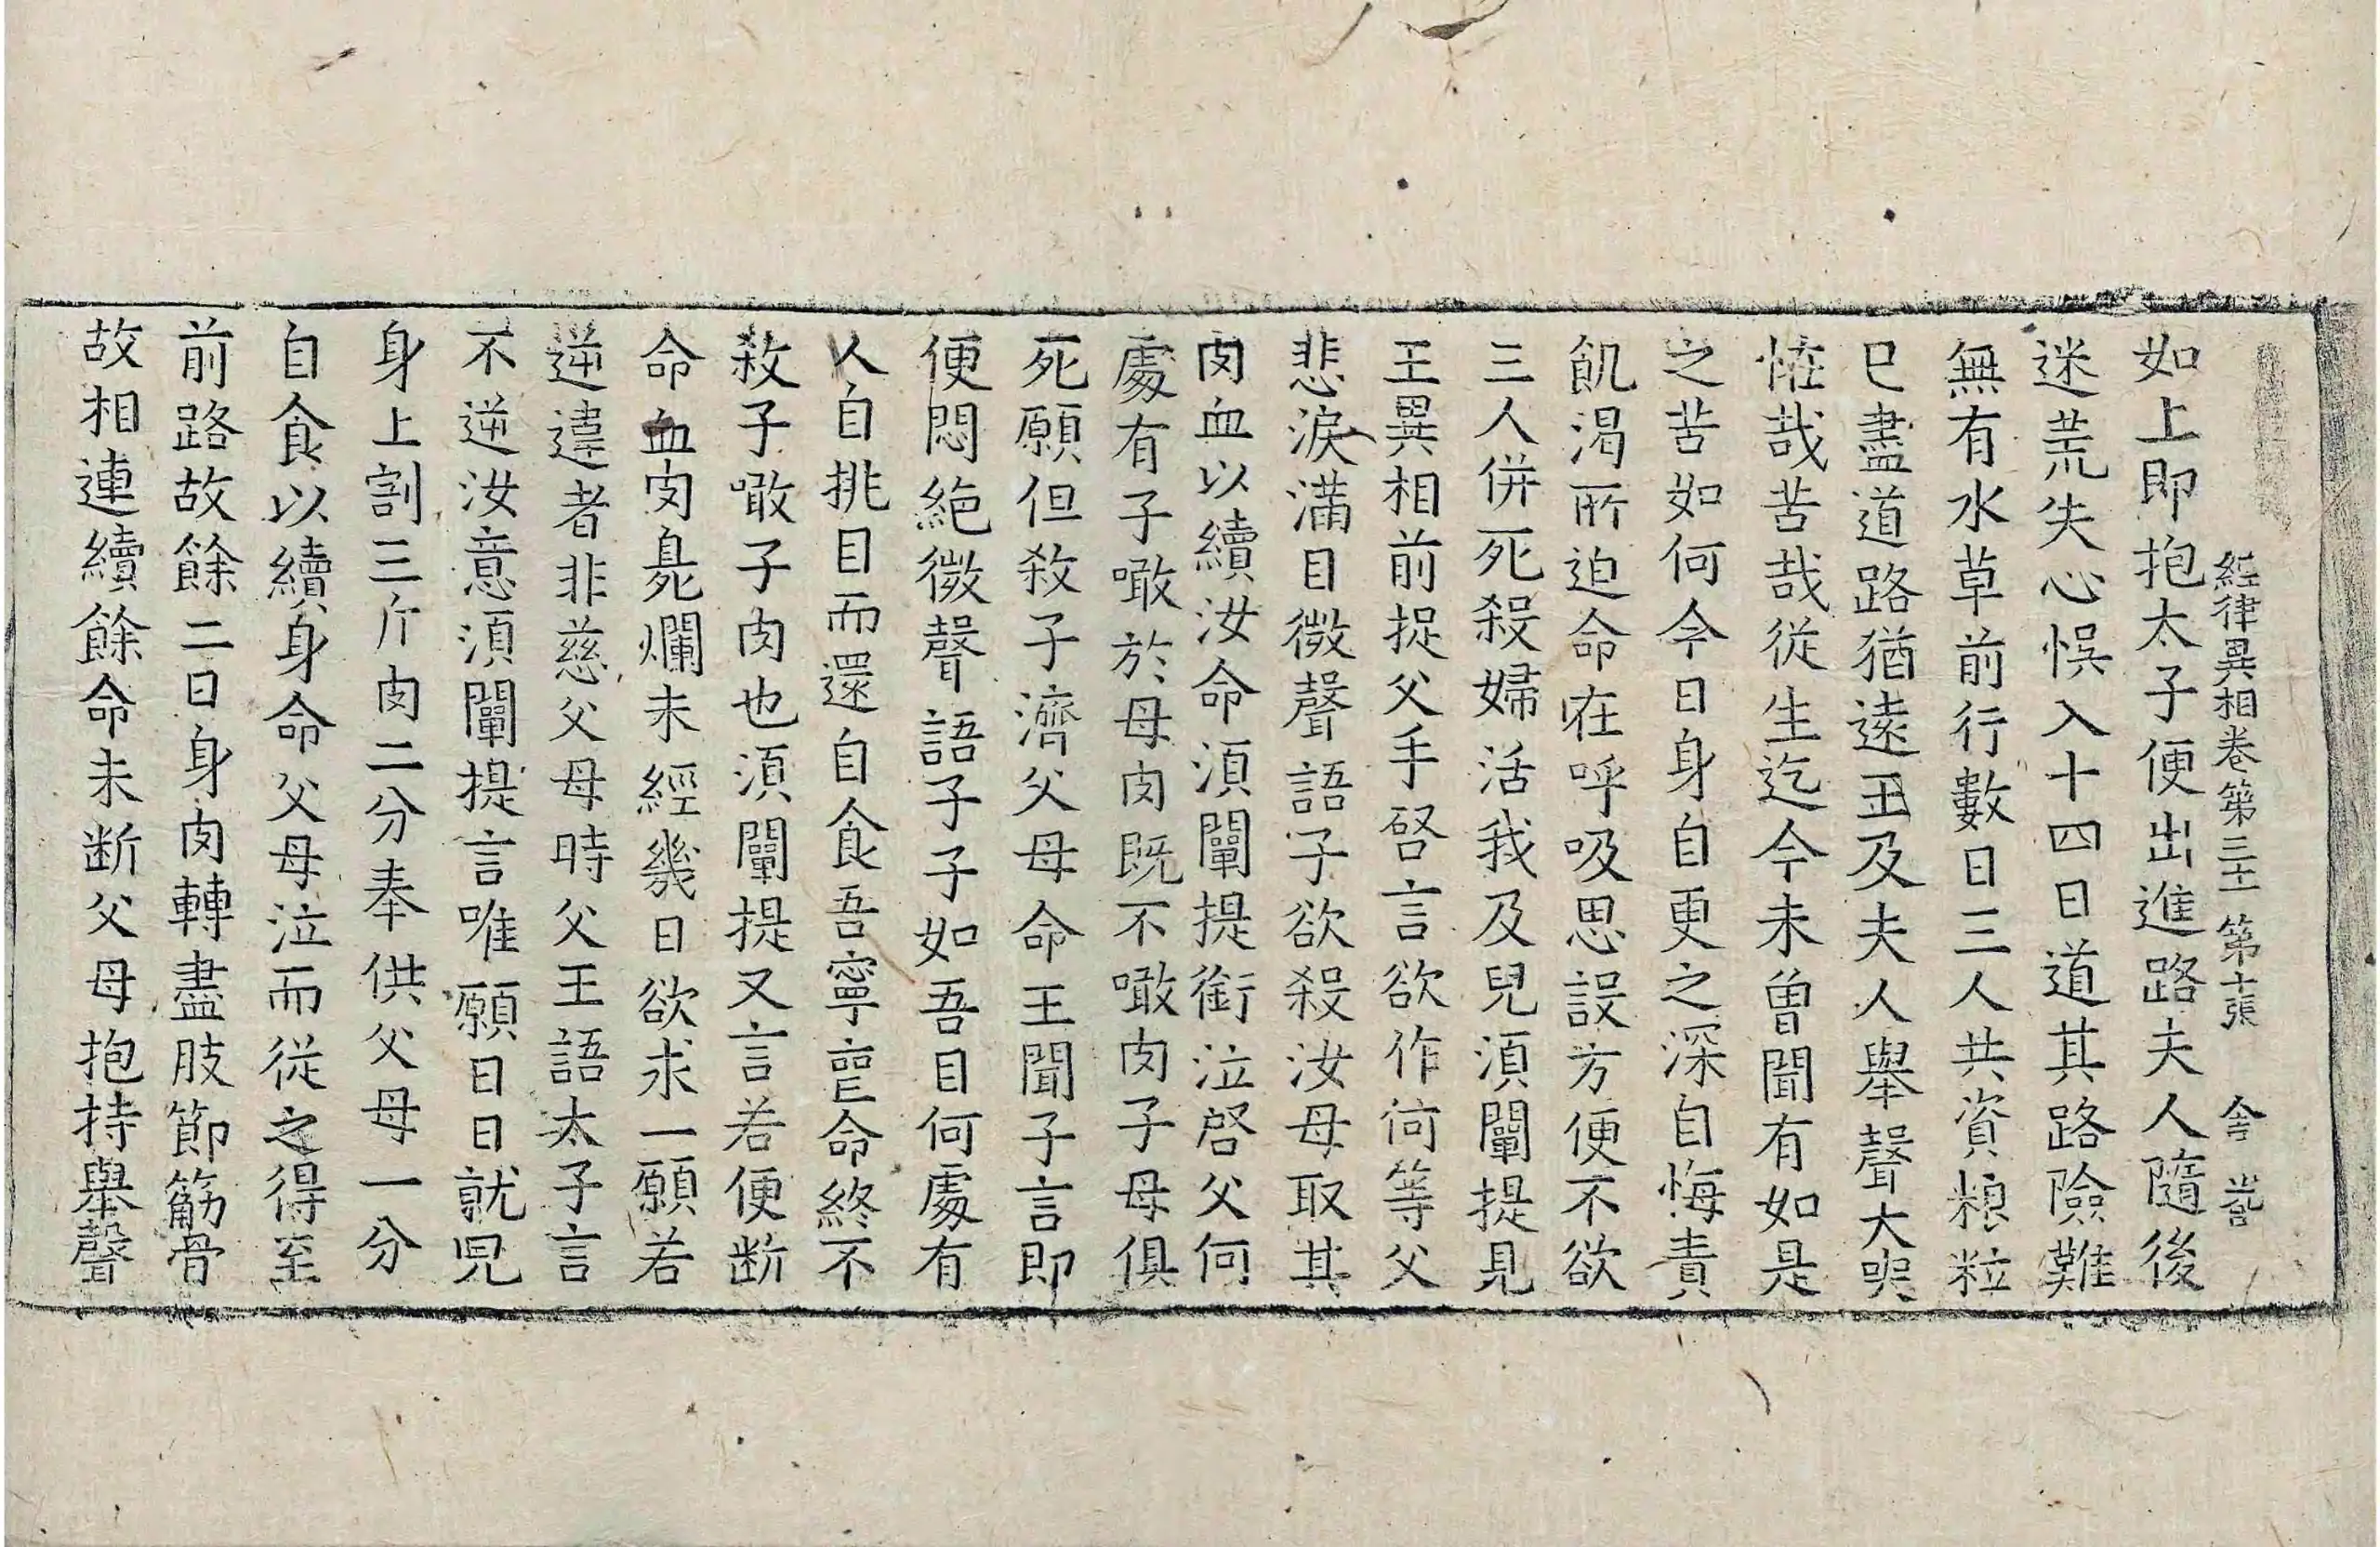 經律異相卷第三十一 第十張 舍 㖸
如上即抱太子便出進路夫人隨後
迷荒失心悞入十四日道其路險難
無有水草前行數日三人共資粮粒
已盡道路猶遠王及夫人舉聲大哭
恠哉苦哉從生迄今未曾聞有如是
之苦如何今日身自更之深自悔責
飢渴所迫命在呼吸思設方便不欲
三人併死殺婦活我及兒湏闡提見
王異相前捉父手啓言欲作何等父
悲淚滿目微聲語子欲殺汝母取其
肉血以續汝命湏闡提銜泣啓父何
處有子噉於母肉既不噉肉子母俱
死願但殺子濟父母命王聞子言即
便悶絕微聲語子子如吾目何處有
人自挑目而還自食吾寧喪命終不
殺子噉子肉也湏闡提又言若便斷
命血肉臭爛未經幾日欲求一願若
逆違者非慈父母時父王語太子言
不逆汝意湏闡提言唯願日日就兒
身上割三斤肉二分奉供父母一分
自食以續身命父母泣而從之得至
前路故餘二日身肉轉盡肢節筋骨
故相連續餘命未斷父母抱持舉聲